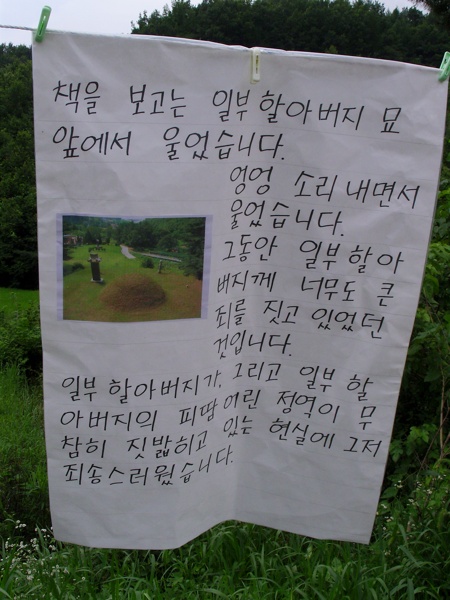 책을 보고는 일부 할아버지 묘
앞에서 울었습니다.
엉엉 소리 내면서
울었습니다.
그동안 일부 할아
버지께 너무도 큰
죄를 짓고 있었던
것입니다.
일부 할아버지가, 그리고 일부 할
아버지의 피땀 어린 정역이 무
참히 짓밟히고 있는 현실에 그저
죄송스러웠습니다.